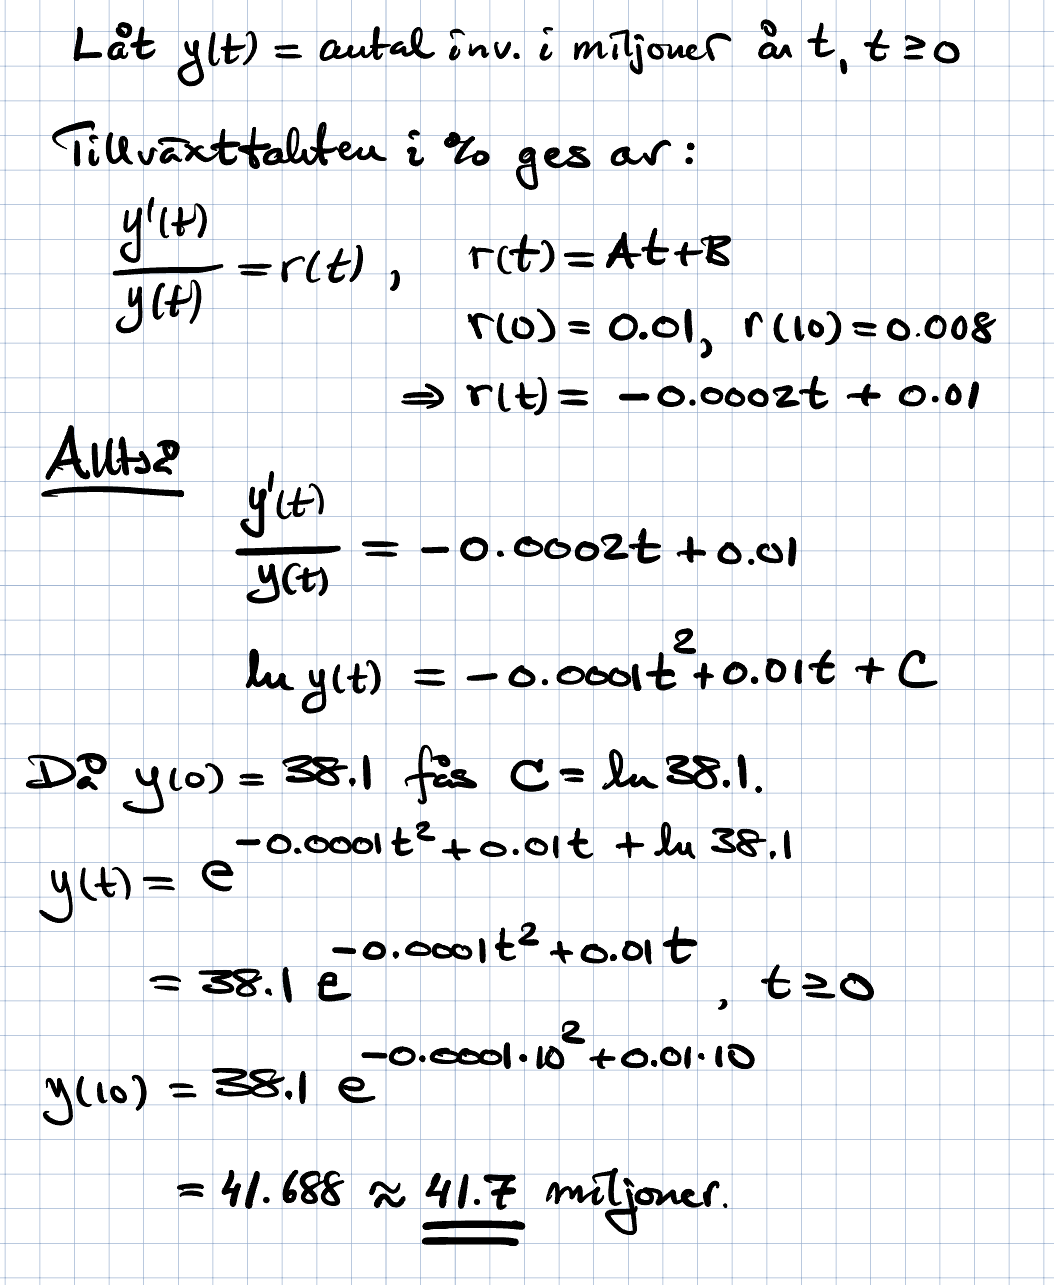 Låt y(t) = antal inv. i miljoner år t, t ≥ 0
Tillväxttakten i % ges av:
y'(t)/y(t) = r(t), r(t) = At+B
r(0) = 0.01, r(10) = 0.008
⇒ r(t) = -0.0002t + 0.01
Alltså
y'(t)/y(t) = -0.0002t + 0.01
ln y(t) = -0.0001t² + 0.01t + C
Då y(0) = 38.1 fås C = ln 38.1.
y(t) = e^(-0.0001t² + 0.01t + ln 38.1)
= 38.1 e^(-0.0001t² + 0.01t), t ≥ 0
y(10) = 38.1 e^(-0.0001·10² + 0.01·10)
= 41.688 ≈ 41.7 miljoner.